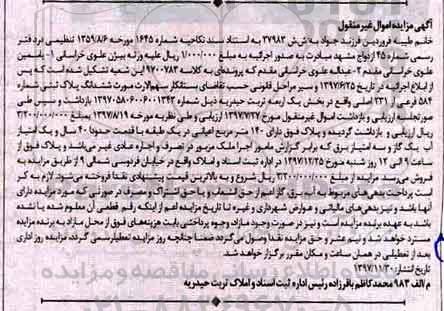 آگهی مزایده اموال غیر منقول
خانم طیبه فروردین فرزند جواد به ش ش ۳۷۹۸۳ به استناد سند نکاحیه شماره ۱۶۴۵ مورخه ۱۳۵۹/۸/۶ تنظیمی در دفتر
رسمی شماره ۴۵ ازدواج مشهد مبادرت به صدور اجرائیه به مبلغ ۱/۰۰۰/۰۰۰ ریال علیه ورثه بیژن علوی خراسانی ۱- یاسمین
علوی خراسانی مقدم ۲- عبداله علوی خراسانی مقدم که پرونده‌ای به کلاسه ۹۷۰۰۷۸۳ این شعبه تشکیل شده است که پس
از ابلاغ اجرائیه در تاریخ ۱۳۹۷/۶/۲۵ و سیر مراحل قانونی حسب تقاضای بستانکار سهم‌الارث مورث ششدانگ پلاک ثبتی شماره
۵۸۴ فرعی از ۲۳۱ اصلی واقع در بخش یک اربعه تربت حیدریه ذیل شماره ۱۳۹۷۰۵۸۰۶۰۰۶۰۰۱۳۴۳ بازداشت و سپس طی
صورتجلسه ارزیابی و بازداشت اموال غیرمنقول مورخ ۱۳۹۷/۷/۲۷ ارزیابی و طی نظریه مورخه ۱۳۹۷/۸/۱۹ بمبلغ ۳/۲۰۰/۰۰۰/۰۰۰
ریال ارزیابی و بازداشت گردیده و پلاک فوق دارای ۱۴۰ متر مربع اعیانی در یک طبقه با قدمت حدودا ۴۰ سال و یک امتیاز
آب یک گاز و سه امتیاز برق که برابر گزارش مامور اجرا ملک مزبور در تصرف و اجاره عادی غیر می‌باشد و پلاک فوق از
ساعت ۹ الی ۱۲ روز شنبه مورخ ۱۳۹۷/۱۲/۲۵ در اداره ثبت اسناد و املاک واقع در خیابان فردوسی شمالی ۹ از طریق مزایده به
فروش می‌رسد. مزایده از مبلغ ۳/۲۰۰/۰۰۰/۰۰۰ ریال شروع و به بالاترین قیمت پیشنهادی نقدا فروخته می‌شود. لازم به ذکر
است پرداخت بدهی‌های مربوط به آب، برق، گاز اعم از حق انشعاب و یا حق اشتراک و مصرف در صورتی که مورد مزایده دارای
آنها باشد و نیز بدهی‌های مالیاتی و عوارض شهرداری و غیره تا تاریخ مزایده اعم از اینکه رقم قطعی آن معلوم شده یا نشده
باشد به عهده برنده مزایده است و نیز در صورت وجود مازاد، وجوه پرداختی بابت هزینه‌های فوق از محل مازاد به برنده مزایده
مسترد خواهد شد و نیم عشر و حق مزایده نقدا وصول می‌گردد ضمنا چنانچه روز مزایده تعطیل رسمی گردد، مزایده روز اداری
بعد از تعطیلی در همان ساعت و مکان مقرر برگزار خواهد شد.
تاریخ انتشار: ۱۳۹۷/۱۱/۳۰
م/الف ۹۸۳ محمد کاظم باقرزاده رئیس اداره ثبت اسناد و املاک تربت حیدریه